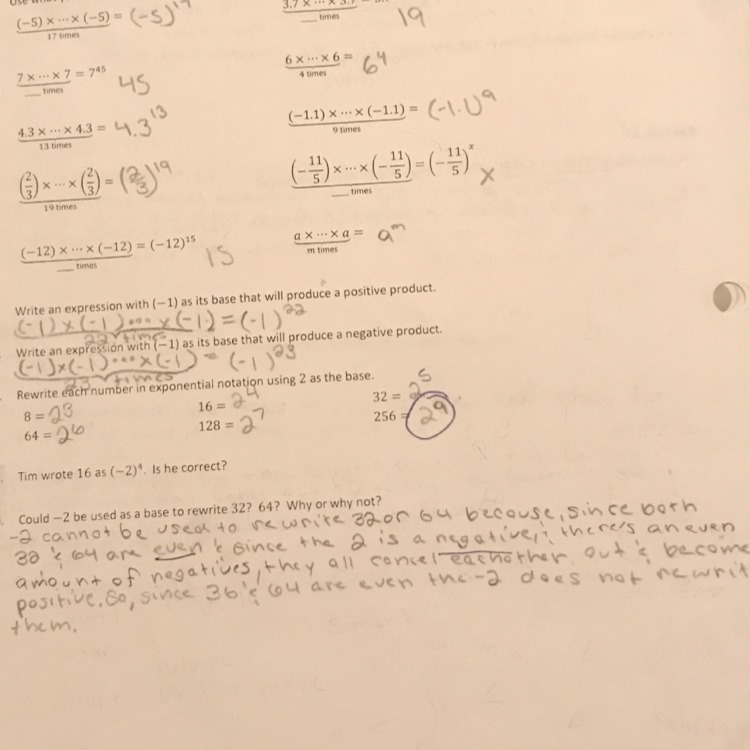 (−5) × ⋯ × (−5) = (-5)¹⁷
17 times
3.7 × ⋯ × 3.7
___ times
19
7 × ⋯ × 7 = 7⁴⁵
___ times
45
6 × ⋯ × 6 = 6⁴
4 times
4.3 × ⋯ × 4.3 = 4.3¹³
13 times
(−1.1) × ⋯ × (−1.1) = (-1.1)⁹
9 times
(2/3) × ⋯ × (2/3) = (2/3)¹⁹
19 times
(−11/5) × ⋯ × (−11/5) = (−11/5)ˣ
___ times
x
(−12) × ⋯ × (−12) = (−12)¹⁵
___ times
15
a × ⋯ × a = aᵐ
m times
Write an expression with (−1) as its base that will produce a positive product.
(-1) x (-1) ••• x (-1) = (-1)²²
22 times
Write an expression with (−1) as its base that will produce a negative product.
(-1) x (-1) ••• x (-1) = (-1)²³
23 times
Rewrite each number in exponential notation using 2 as the base.
8 = 2³ 16 = 2⁴ 32 = 2⁵
64 = 2⁶ 128 = 2⁷ 256 = 2⁹
Tim wrote 16 as (−2)⁴. Is he correct?
Could −2 be used as a base to rewrite 32? 64? Why or why not?
-2 cannot be used to rewrite 32 or 64 because, since both
32 & 64 are even & since the 2 is a negative, there's an even
amount of negatives, they all cancel eachother out & become
positive. So, since 36 & 64 are even the -2 does not rewrit
them.